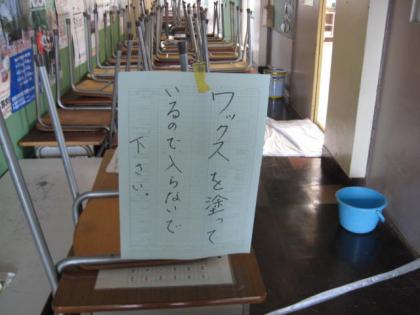 ワックスを塗って
いるので入らないで
下さい。